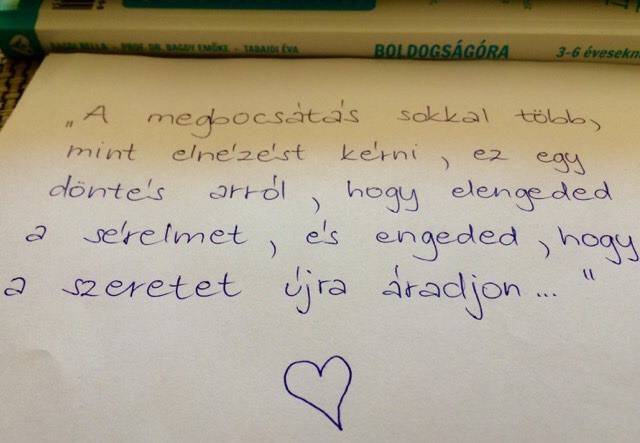 BAGDI BELLA - PROF. DR. BAGDY EMŐKE - TABAJDI ÉVA BOLDOGSÁGÓRA 3-6 évesekn
„A megbocsátás sokkal több,
mint elnézést kérni, ez egy
döntés arról, hogy elengeded
a sérelmet, és engeded, hogy
a szeretet újra áradjon..."